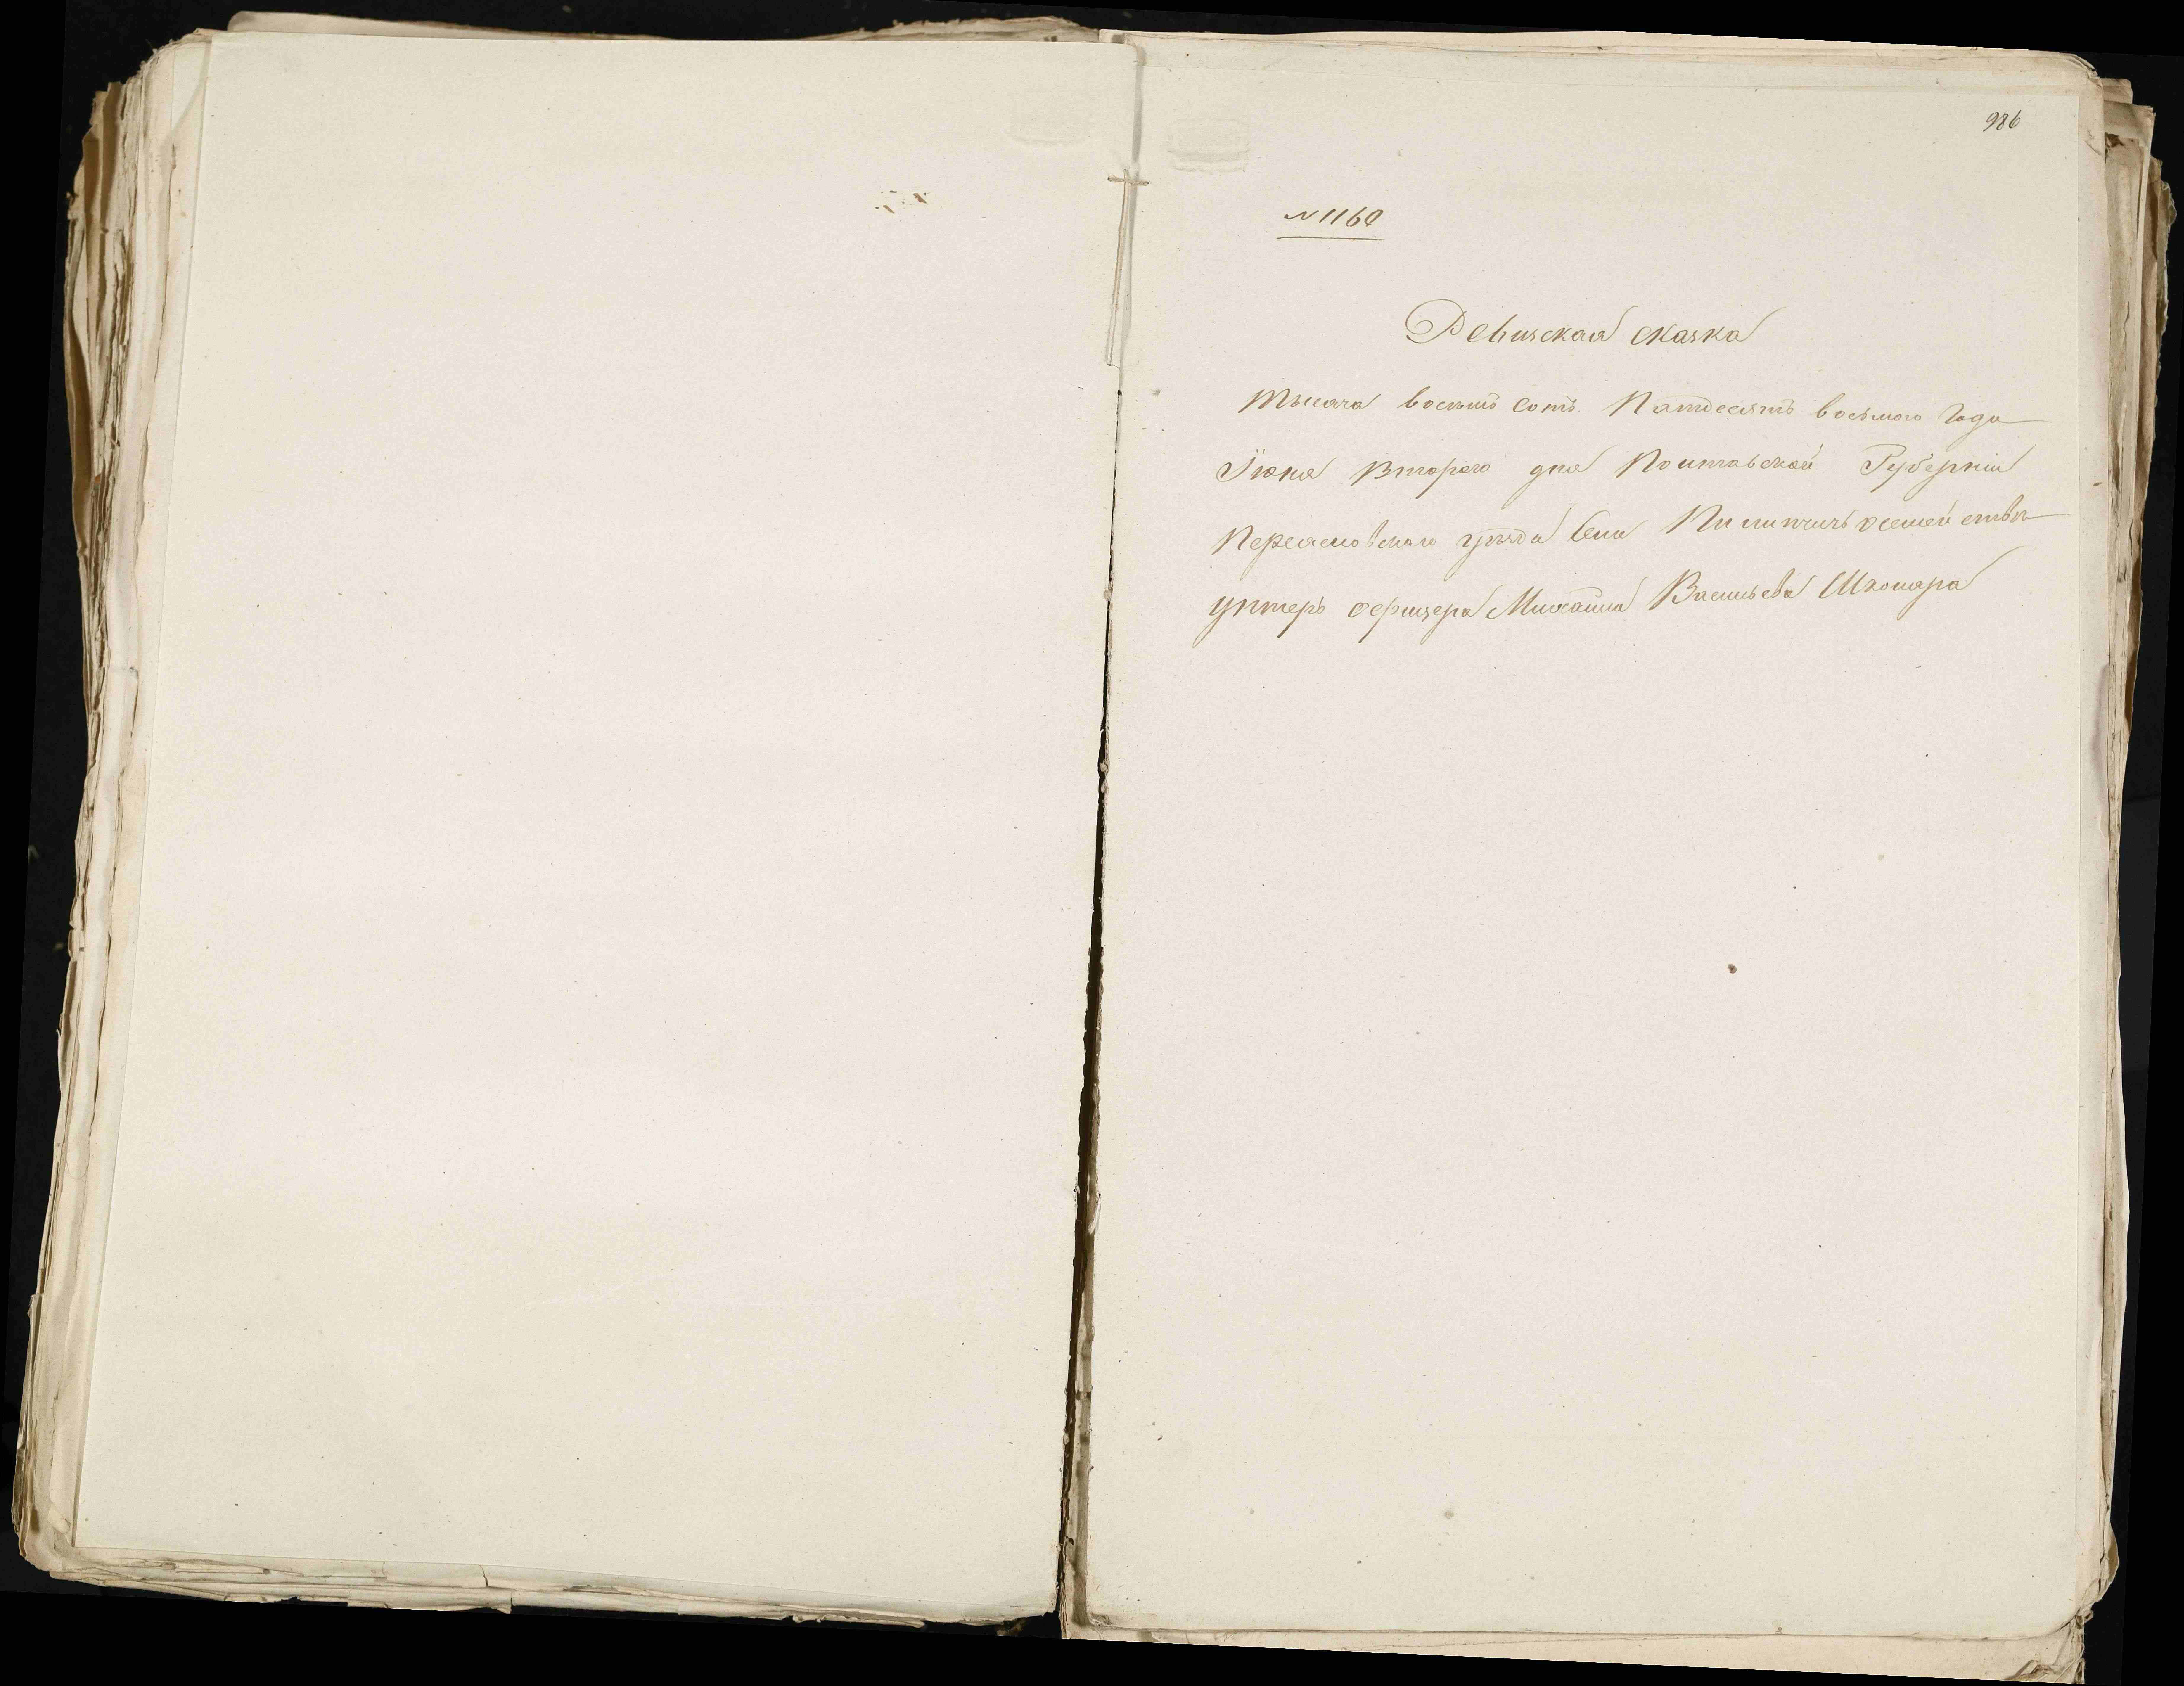 986
№ 1160
Ревизская сказка
Тысяча восемь сотъ Пятдесятъ восьмаго Года
Іюня Втораго дня Полтавской Губерніи
Переяславского уѣзда Села Пилипчи о семействѣ
унтеръ офицера Михаила Васильева Шкомара